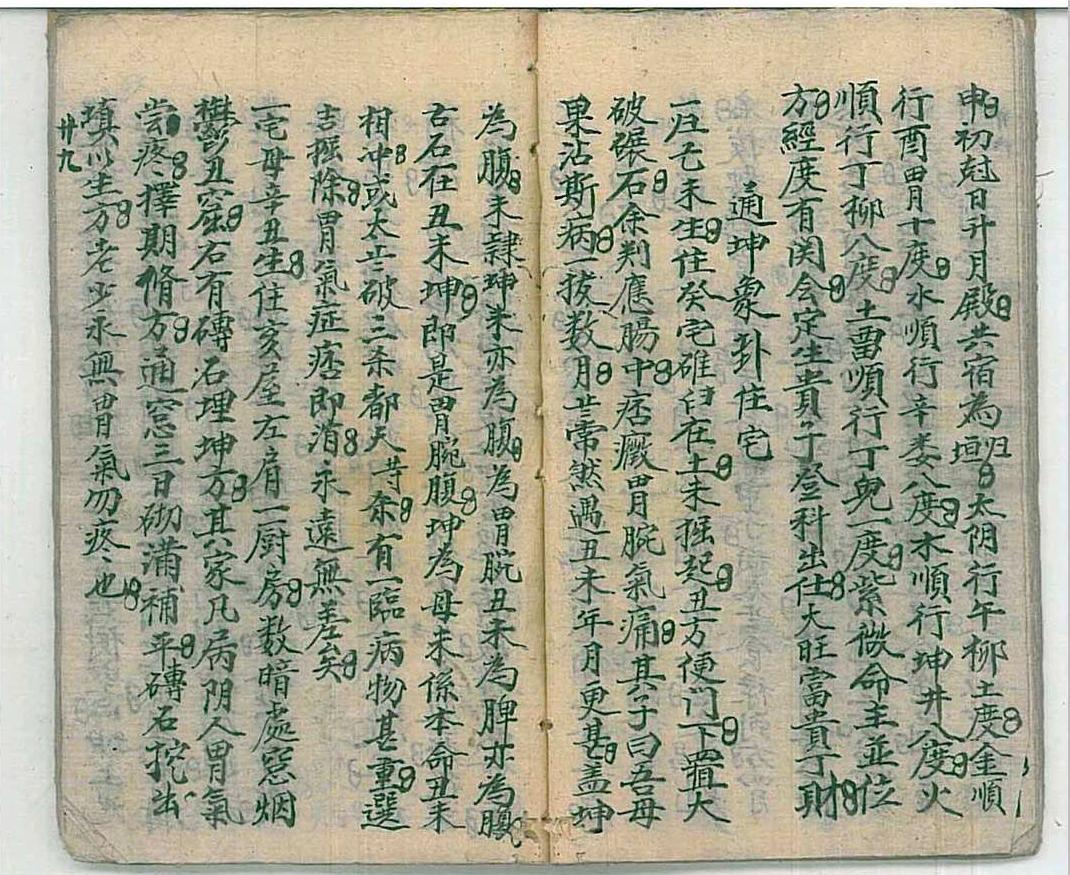 申初尅日升月殿共宿為归垣太阴行午柳土度金順
行酉胃十度水順行辛娄八度木順行坤井八度火
順行丁柳八度土雷順行丁鬼一度紫微命主並位
方經度有関会定生貴子登科出仕大旺富貴丁財
通坤象卦住宅
一庄乞未生住癸宅碓臼在土未掘起丑方便門下置大
破碾石余判應腸中痞癥胃腕氣痛其子曰吾母
果沾斯病一抜数月並常煞遇丑未年月更甚盖坤
為腹未隸坤未亦為腹為胃脘丑未為脾亦為腹
古石在丑未坤即是胃腕腹坤為母未係本命丑未
相冲或太岁破三杀都天等杂有一臨病物甚重選
吉掘除胃氣症痞即消永遠無差矣
一宅母辛丑生住亥屋左肩一厨房数暗處窓烟
鬱丑窟右有磚石埋坤方其家凡病阴人胃氣
尝疼擇期脩方通窓三日砌满補平磚石挖出
填以生方老少永無胃氣勿疼々也
廿九